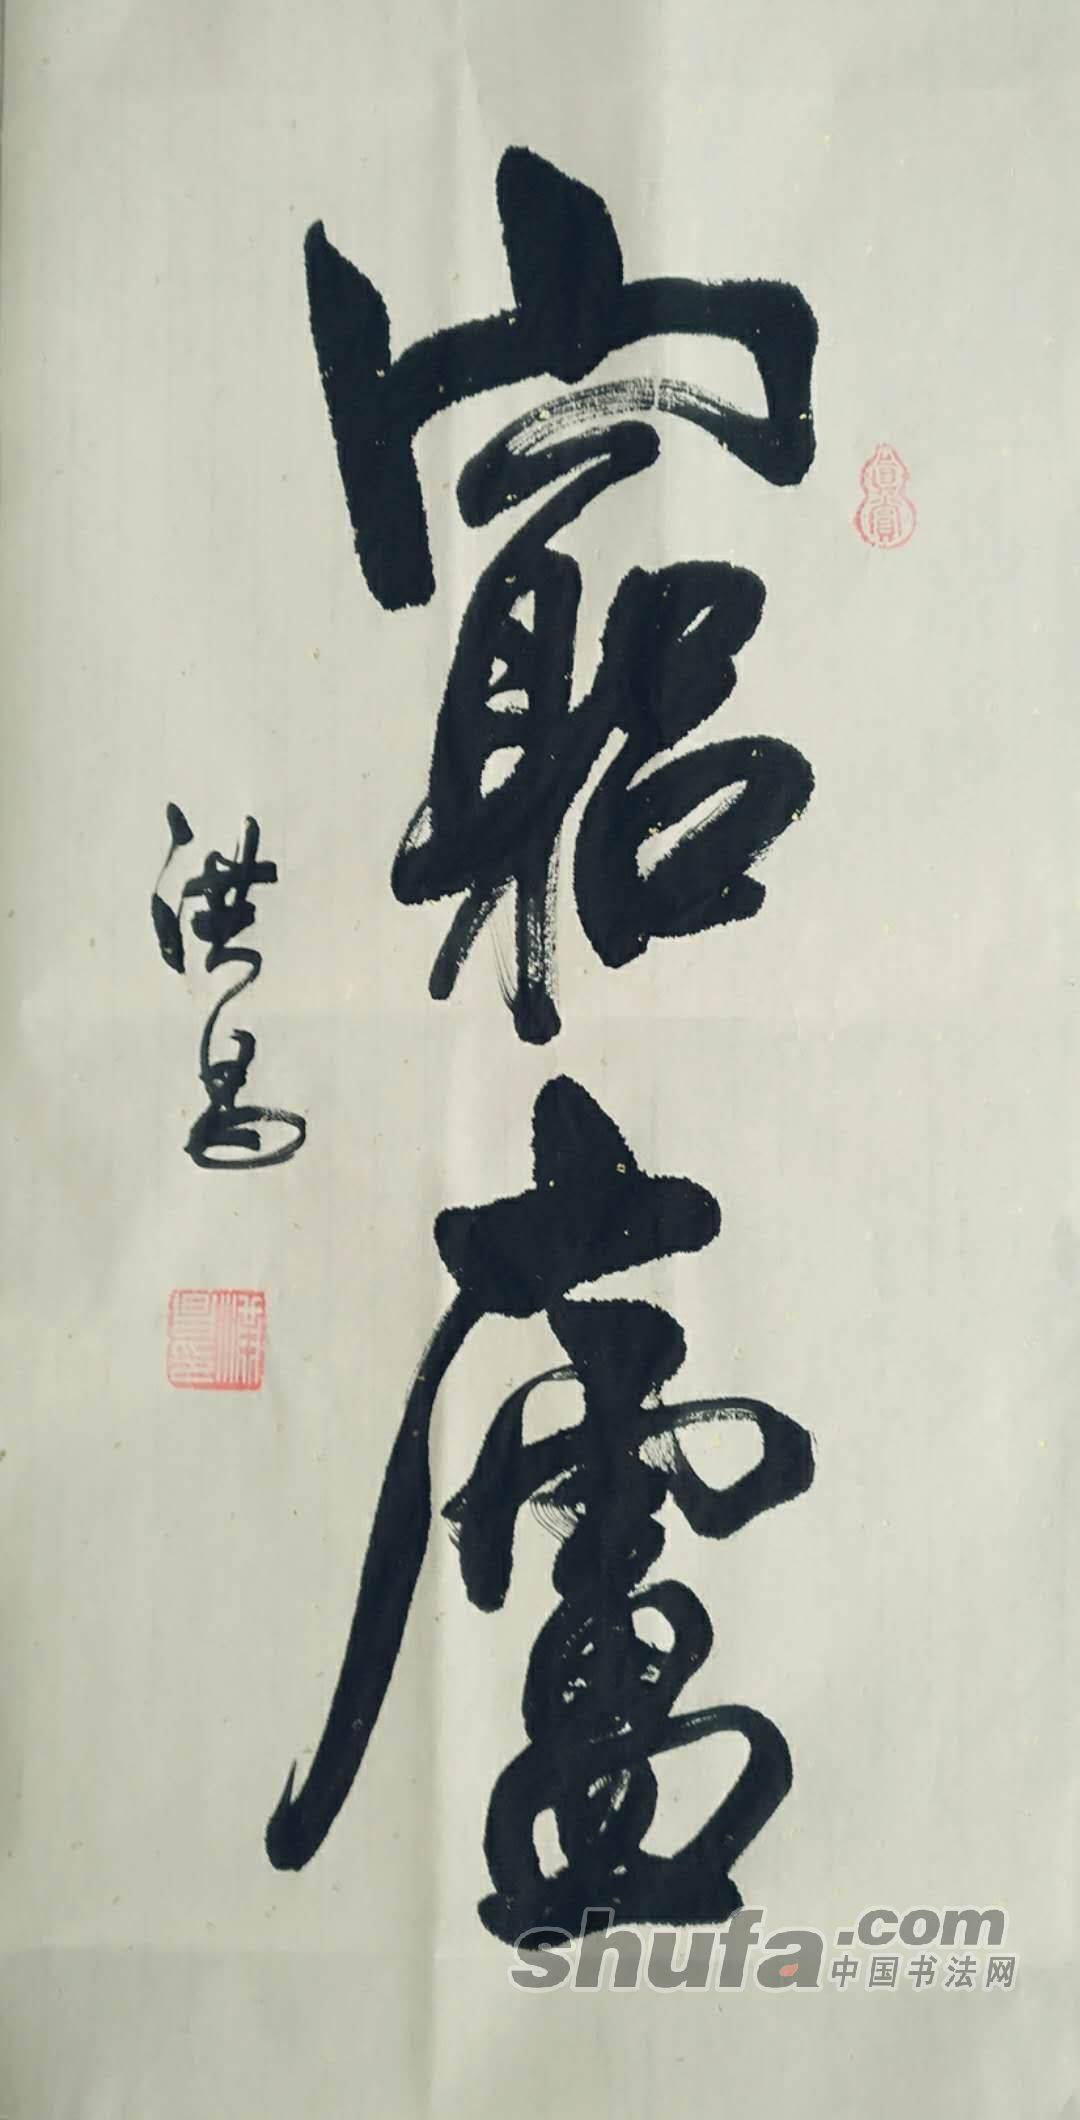 竆廬
洪昌
shufa.com
中国书法网